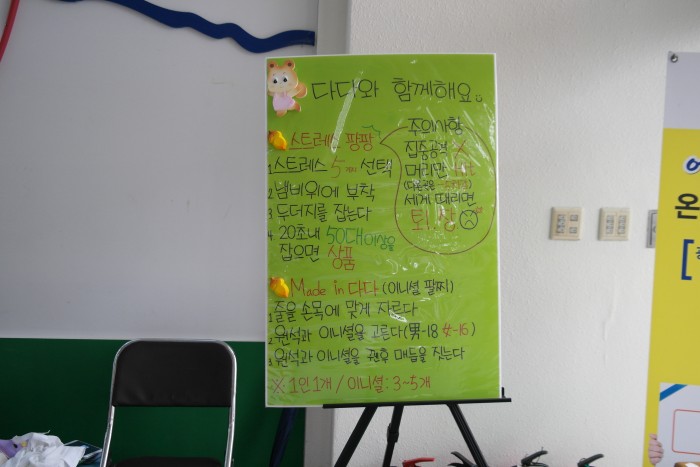 다다와 함께해요
스트레스 팡팡
1. 스트레스 5개 선택
2. 냄비위에 부착
3. 두더지를 잡는다
4. 20초내 50대이상을
잡으면 상품
주의사항
집중공격 X
머리만
세게 때리면
퇴장
Made in 다다 (이니셜 팔찌)
1. 줄을 손목에 맞게 자르다
2. 원석과 이니셜을 고른다 (男-18 女-16)
3. 원석과 이니셜을 꿴후 매듭을 짓는다
※ 1인 1개 / 이니셜: 3~5개
온